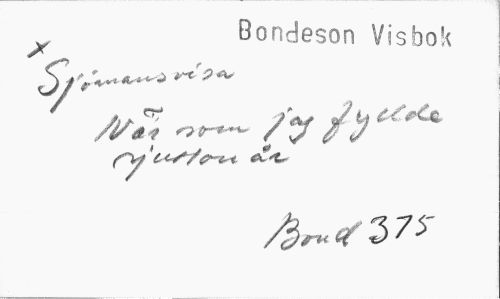 Bondeson Visbok
x
Sjömansvisa
När som jag fyllde
sjutton år
Bond 375